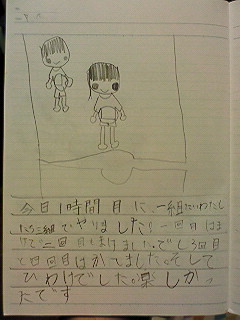 今日1時間目に、一組たいわたし
たち三組でやりました。一回目はま
けて二回目もまけました。でも3回目
と四回目はかてました。そして
ひわけでした。楽しかっ
たです